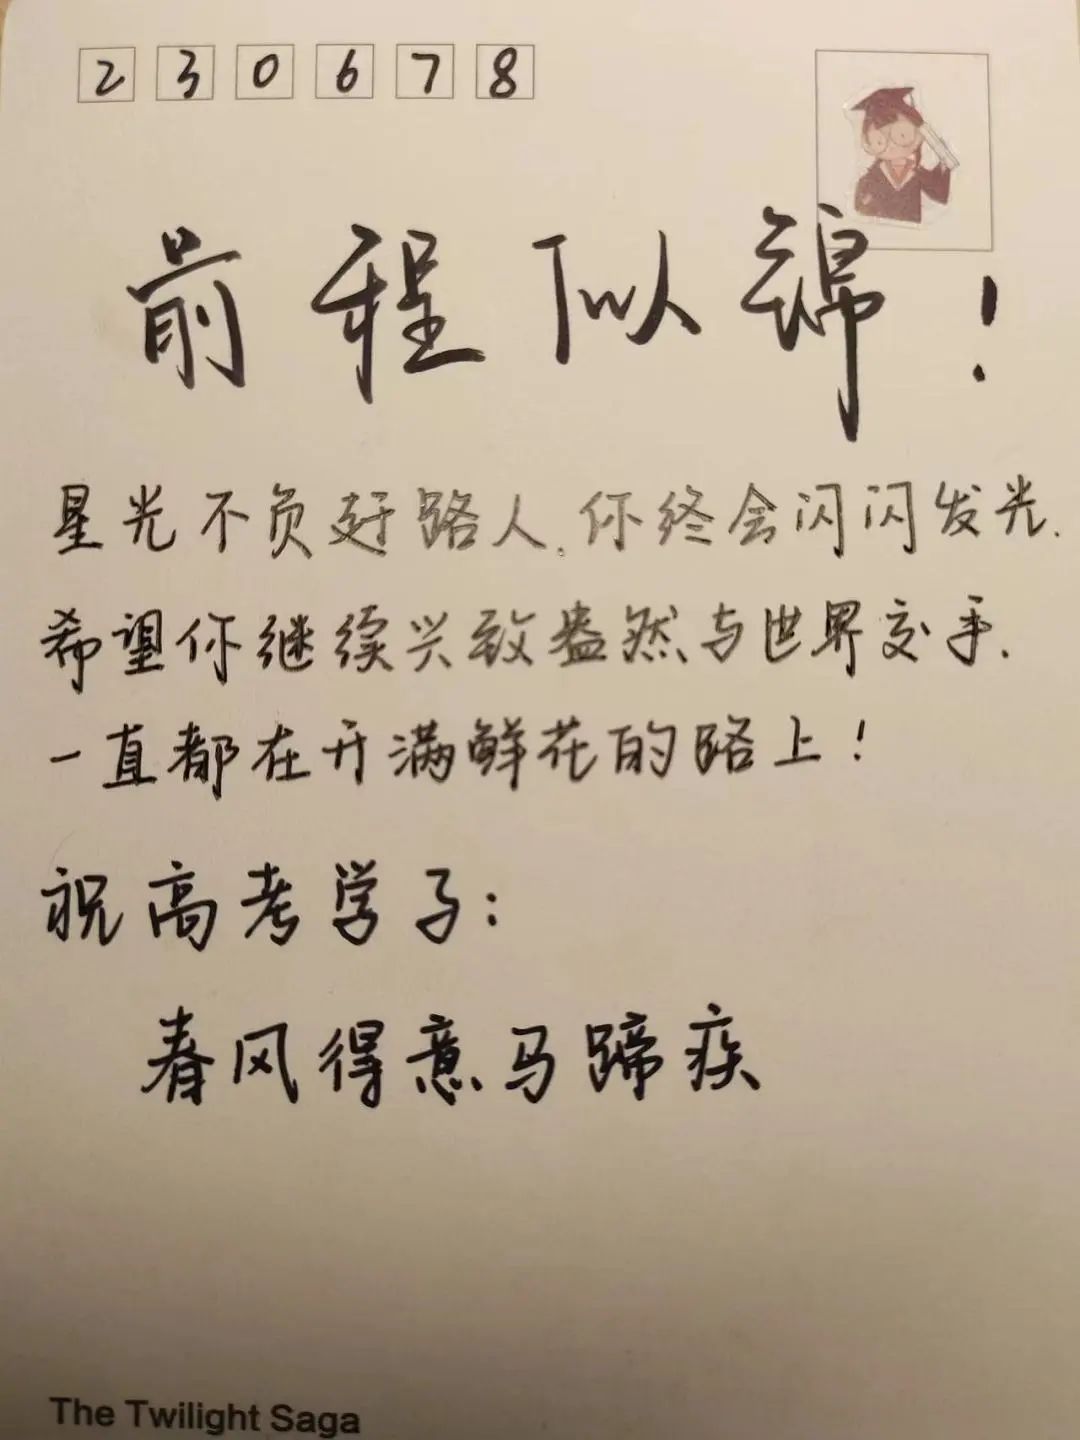 230678
前程似锦！
星光不负赶路人.你终会闪闪发光.
希望你继续兴致盎然与世界交手.
一直都在开满鲜花的路上！
祝高考学子：
春风得意马蹄疾
The Twilight Saga